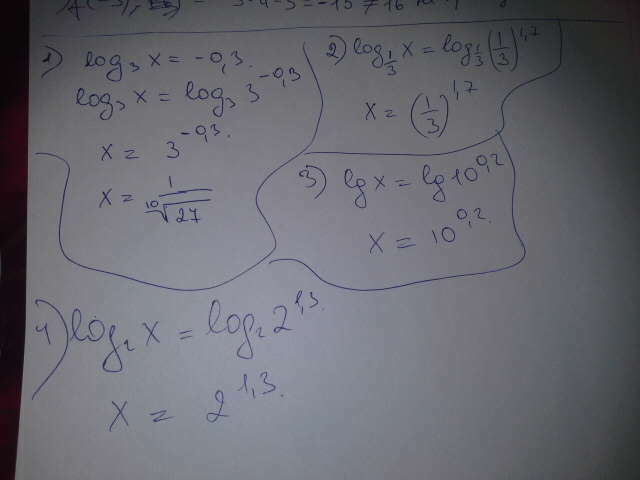 1) log₃ x = -0,3.
log₃ x = log₃ 3^{-0,3}
x = 3^{-0,3}.
x = 1/¹⁰√27
2) log_{1/3} x = log_{1/3} (1/3)^{1,7}
x = (1/3)^{1,7}
3) lg x = lg 10^{0,2}
x = 10^{0,2}.
4) log₂ x = log₂ 2^{1,3}.
x = 2^{1,3}.